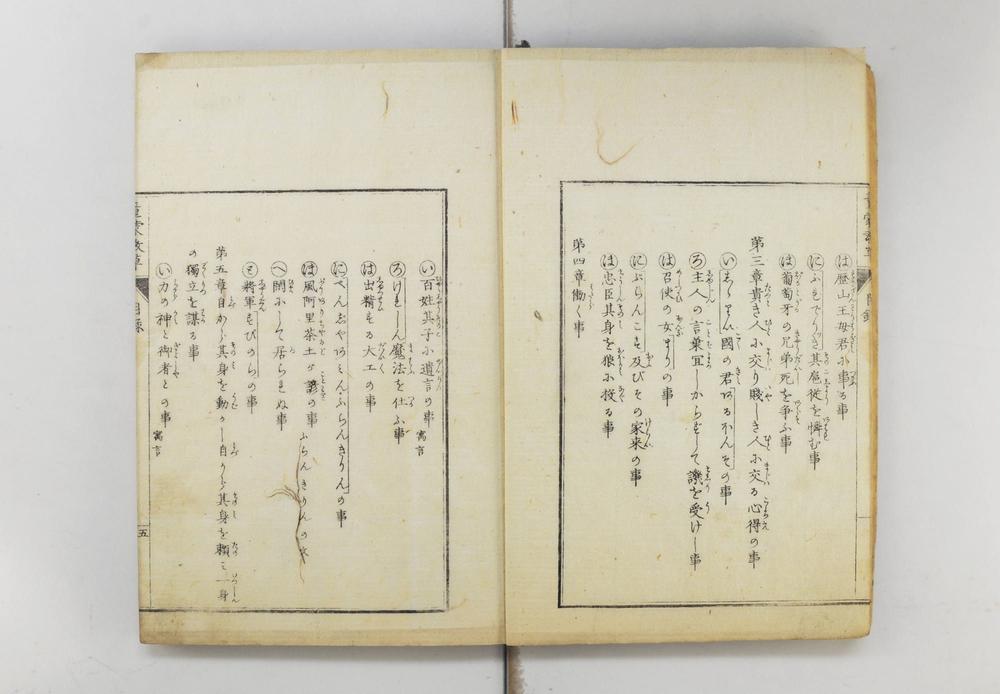 は歴山王母君に事る事
にふれでりつき其扈従を憐む事
ほ葡萄牙の兄弟死を争ふ事
第三章貴き人に交り賤しき人に交る心得の事
い志ゝりや國の君あるほんその事
ろ主人の言葉宜しからずして譏を受けし事
は召使の女まりの事
にぶらんこす及びその家来の事
ほ忠臣其身を狼に投る事
第四章働く事
い百姓其子に遺言の事 寓言
ろけれしん魔法を仕ふ事
は出精する大工の事
にべんじやみん、ふらんきりんの事
ほ風阿里茶土が諺の事 ふらんきりんの文
へ閑にして居られぬ事
と将軍すびのらの事
第五章自から其身を動かし自から其身を頼み一身
の獨立を謀る事
い力の神と御者との事 寓言
童蒙教草 目録
五